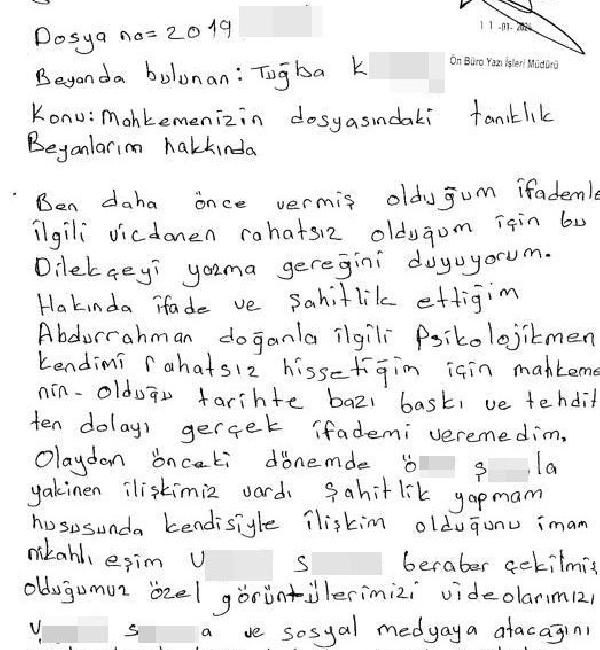 Dosya no= 2019
11-01-
Ön Büro Yazı İşleri Müdürü
Beyanda bulunan: Tuğba K
Konu: Mahkemenizin dosyasındaki tanıklık
Beyanlarım hakkında
Ben daha önce vermiş olduğum ifademle
ilgili vicdanen rahatsız olduğum için bu
Dilekçeyi yazma gereğini duyuyorum.
Hakında ifade ve şahitlik ettiğim
Abdurrahman doğanla ilgili Psikolojikmen
kendimi rahatsız hissetiğim için mahkeme
nin- olduğu tarihte bazı baskı ve tehdit
ten dolayı gerçek ifademi veremedim.
Olaydan önceki dönemde ö ş la
yakinen ilişkimiz vardı şahitlik yapmam
hususunda kendisiyle ilişkim olduğunu imam
nikahlı eşim U S beraber çekilmiş
olduğumuz özel görüntülerimizi videolarımızı
U S a ve sosyal medyaya atacağını